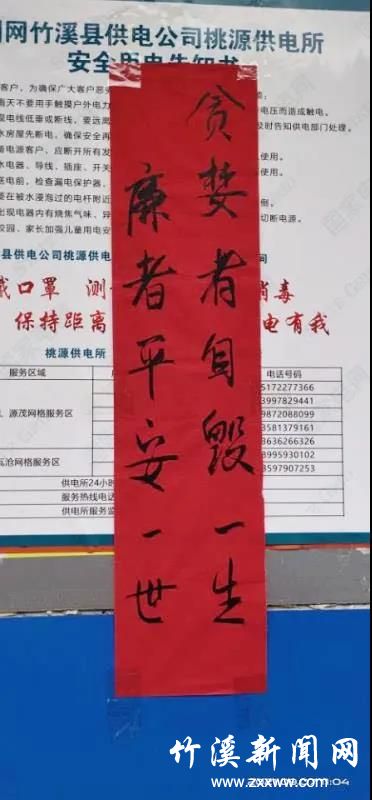 国网竹溪县供电公司桃源供电所
安全用电告知书
客户，为确保广大客户
雨天不要用手触摸户外电力
电压而造成触电。
现电线低垂或断线，要远离
及时告知供电部门处理。
水房屋先断电，确保安全再
备电源客户，应断开所有
水电器、导线、插座、开关
使用。
送电前，检查漏电保护器、
要在被水浸泡过的电杆附近
使用。
出现电器内有烧焦气味、异
切断电源。
校园、家长加强儿童用电安
县供电公司桃源供电
戴口罩 测
消毒
保持距离
电有我
桃源供电所
服务区域
电话号码
15172277366
13997829441
源茂网格服务区
19872088099
13581379161
13636266326
瓦沧网格服务区
18995930102
13597907253
供电所24小时
服务热线电话
供电所服务监
贪婪者自毁一生
廉者平安一世
竹溪新闻网
www.zxxww.com